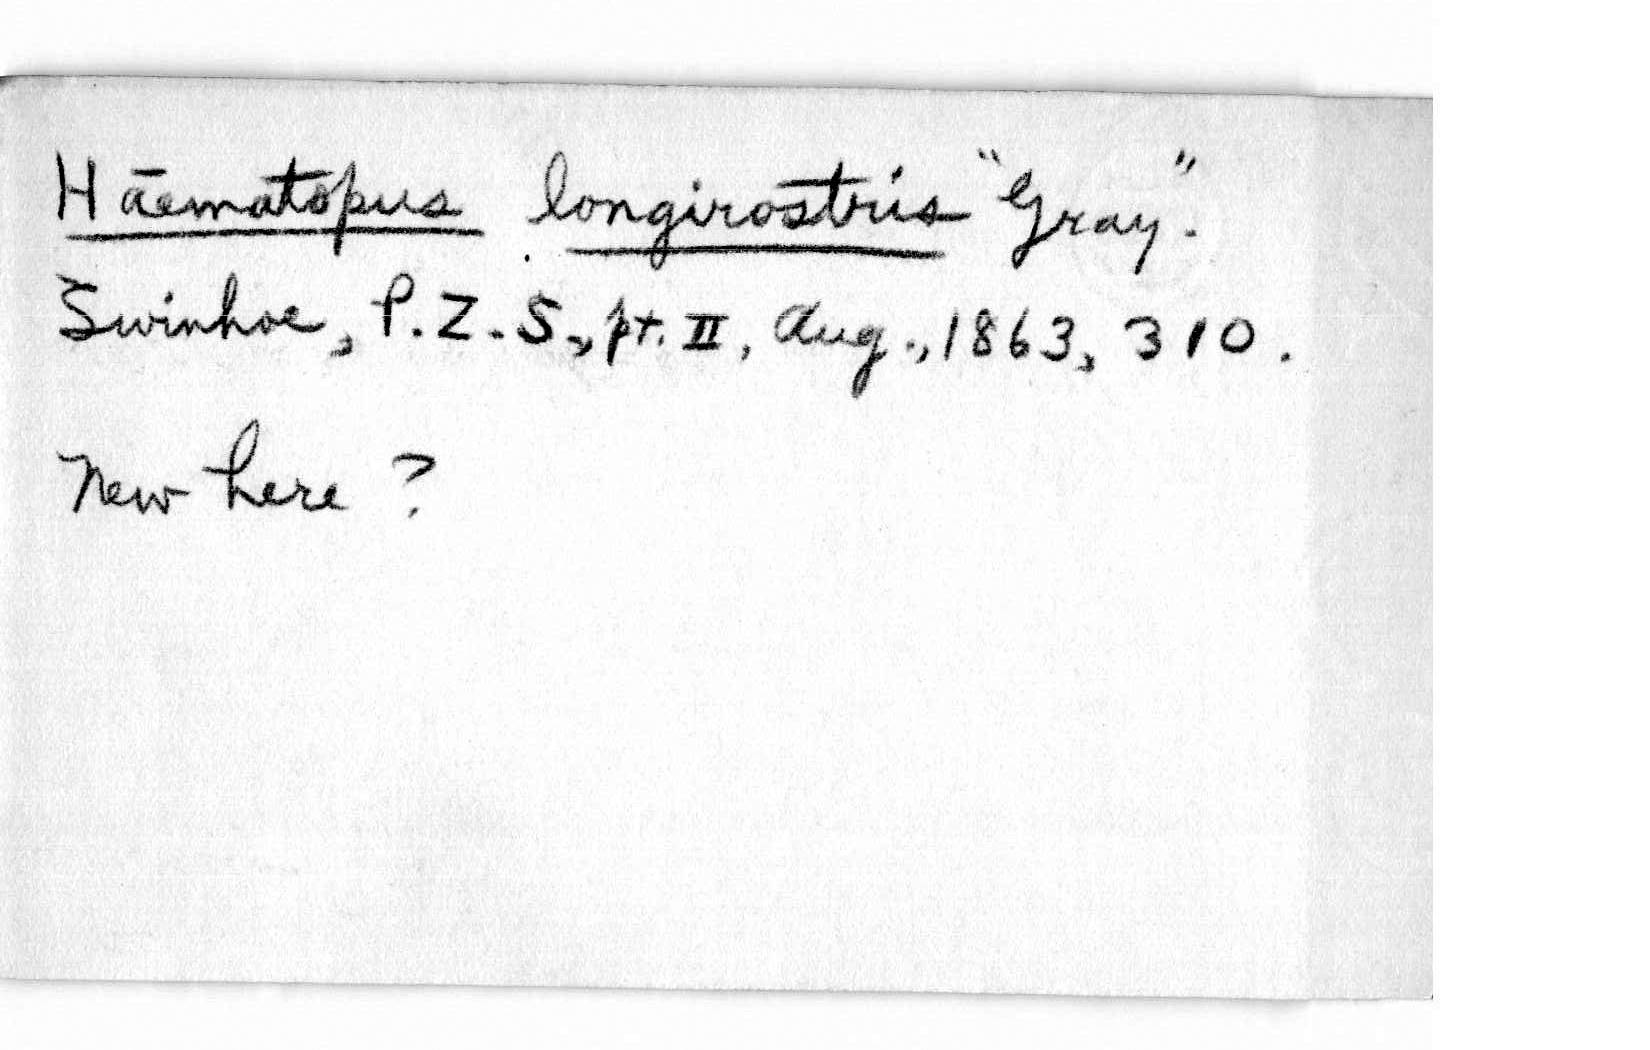 Haematopus longirostris "Gray".
Swinhoe, P.Z.S., pt. II, Aug., 1863, 310.
New here?